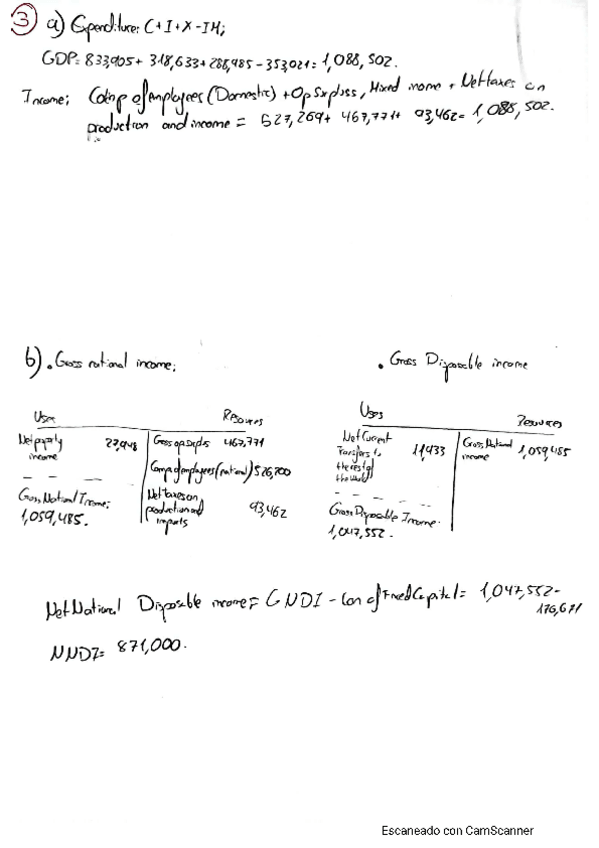 3 a) Expenditure: C+I+X-IM;
GDP= 833,905+ 318,633+288,985-353,021= 1,088,502.
Income: Comp of employees (Domestic) + Op Surpluss, Mixed income + Net taxes on
production and income = 527,269+ 467,771+ 93,462= 1,088,502.
b) . Gross national income;
Uses Resources
Net property income 27,948
Gross op Surplus 467,771
Comp of employees (national) 526,200
Net taxes on production and imports 93,462
Gross National Income: 1,059,485.
. Gross Disposable income
Uses Resources
Net Current Transfers to the rest of the world 11,933
Gross National income 1,059,485
Gross Disposable Income: 1,047,552.
Net National Disposable income= GNDI - Con of Fixed Capital= 1,047,552-
176,671
NNDI= 871,000.
Escaneado con CamScanner